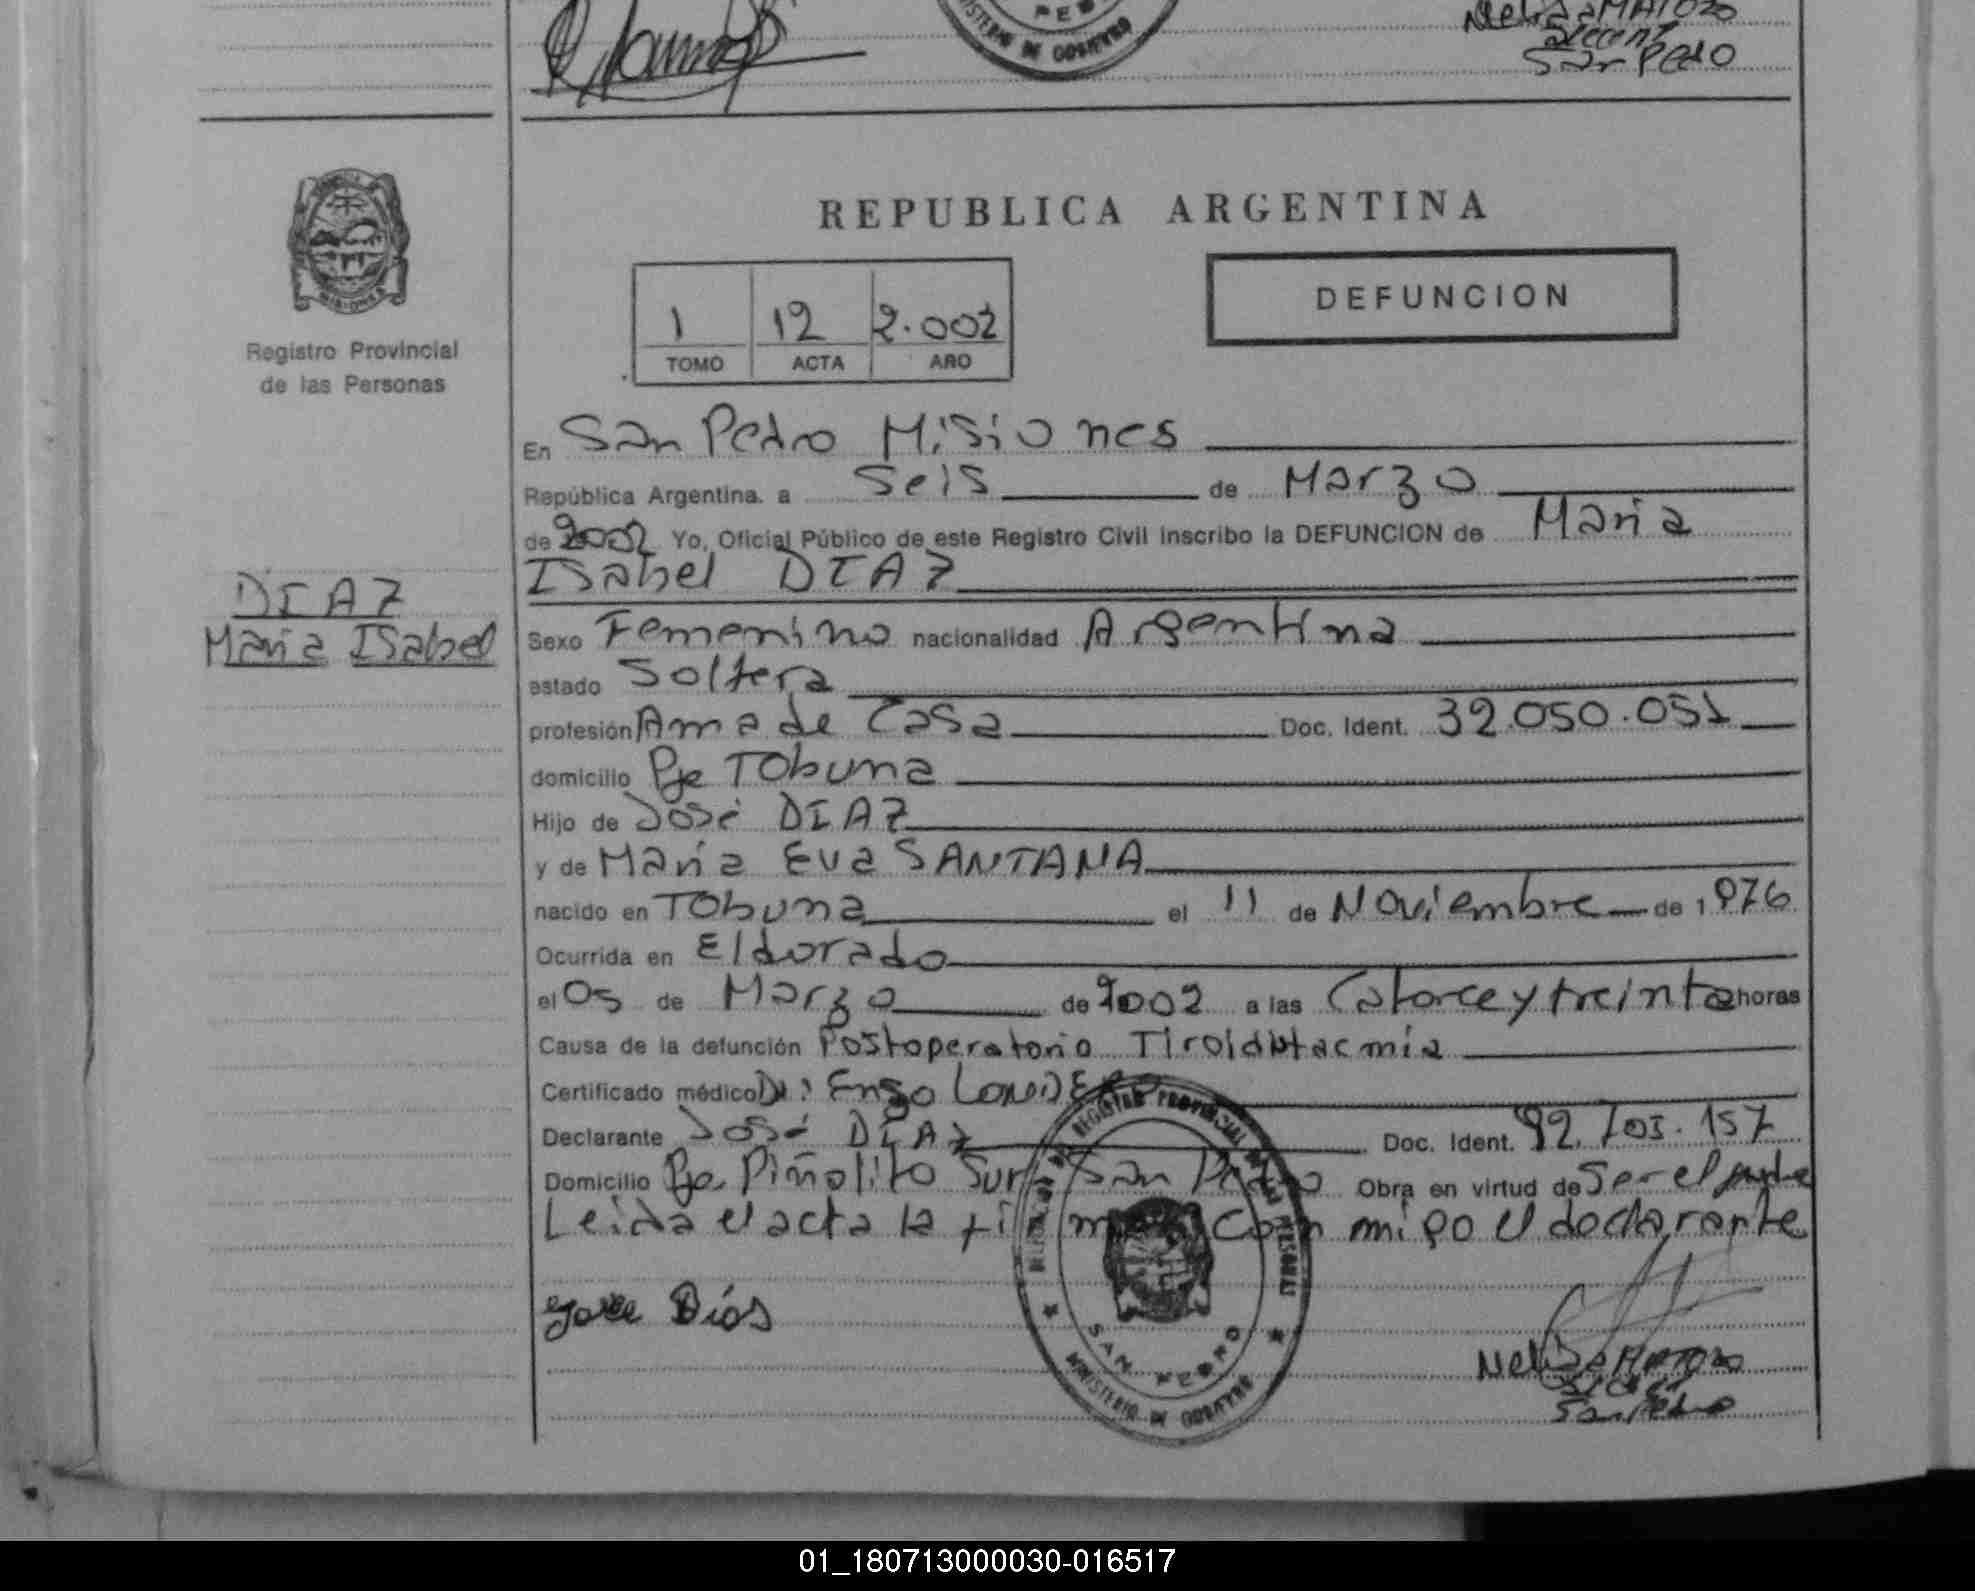 PE
MINISTERIO DE GOBIERNO
San Pedro
REPUBLICA ARGENTINA
DEFUNCION
1 12 2.002
TOMO ACTA AÑO
MISIONES
Registro Provincial
de las Personas
En San Pedro Misiones
República Argentina. a Seis de Marzo
de 2002 Yo, Oficial Público de este Registro Civil inscribo la DEFUNCION de Maria
Isabel DIAZ
DIAZ
Maria Isabel
Sexo Femenino nacionalidad Argentina
estado Soltera
profesión Ama de Casa Doc. Ident. 32.050.051
domicilio Pje Tobuna
Hijo de José DIAZ
y de Maria Eva SANTANA
nacido en Tobuna el 11 de Noviembre de 1976
Ocurrida en Eldorado
el 05 de Marzo de 2002 a las Catorce y treinta horas
Causa de la defunción Postoperatorio
Certificado médico Dr: Enzo
Declarante José DIAZ Doc. Ident. 157
Domicilio Pje Piñalito Sur San Pedro Obra en virtud de Ser el padre
Leida el acta la firma con migo el declarante
REGISTRO PROVINCIAL DE LAS PERSONAS
SAN PEDRO
MINISTERIO DE GOBIERNO
Jose Dias
San Pedro
01_180713000030-016517